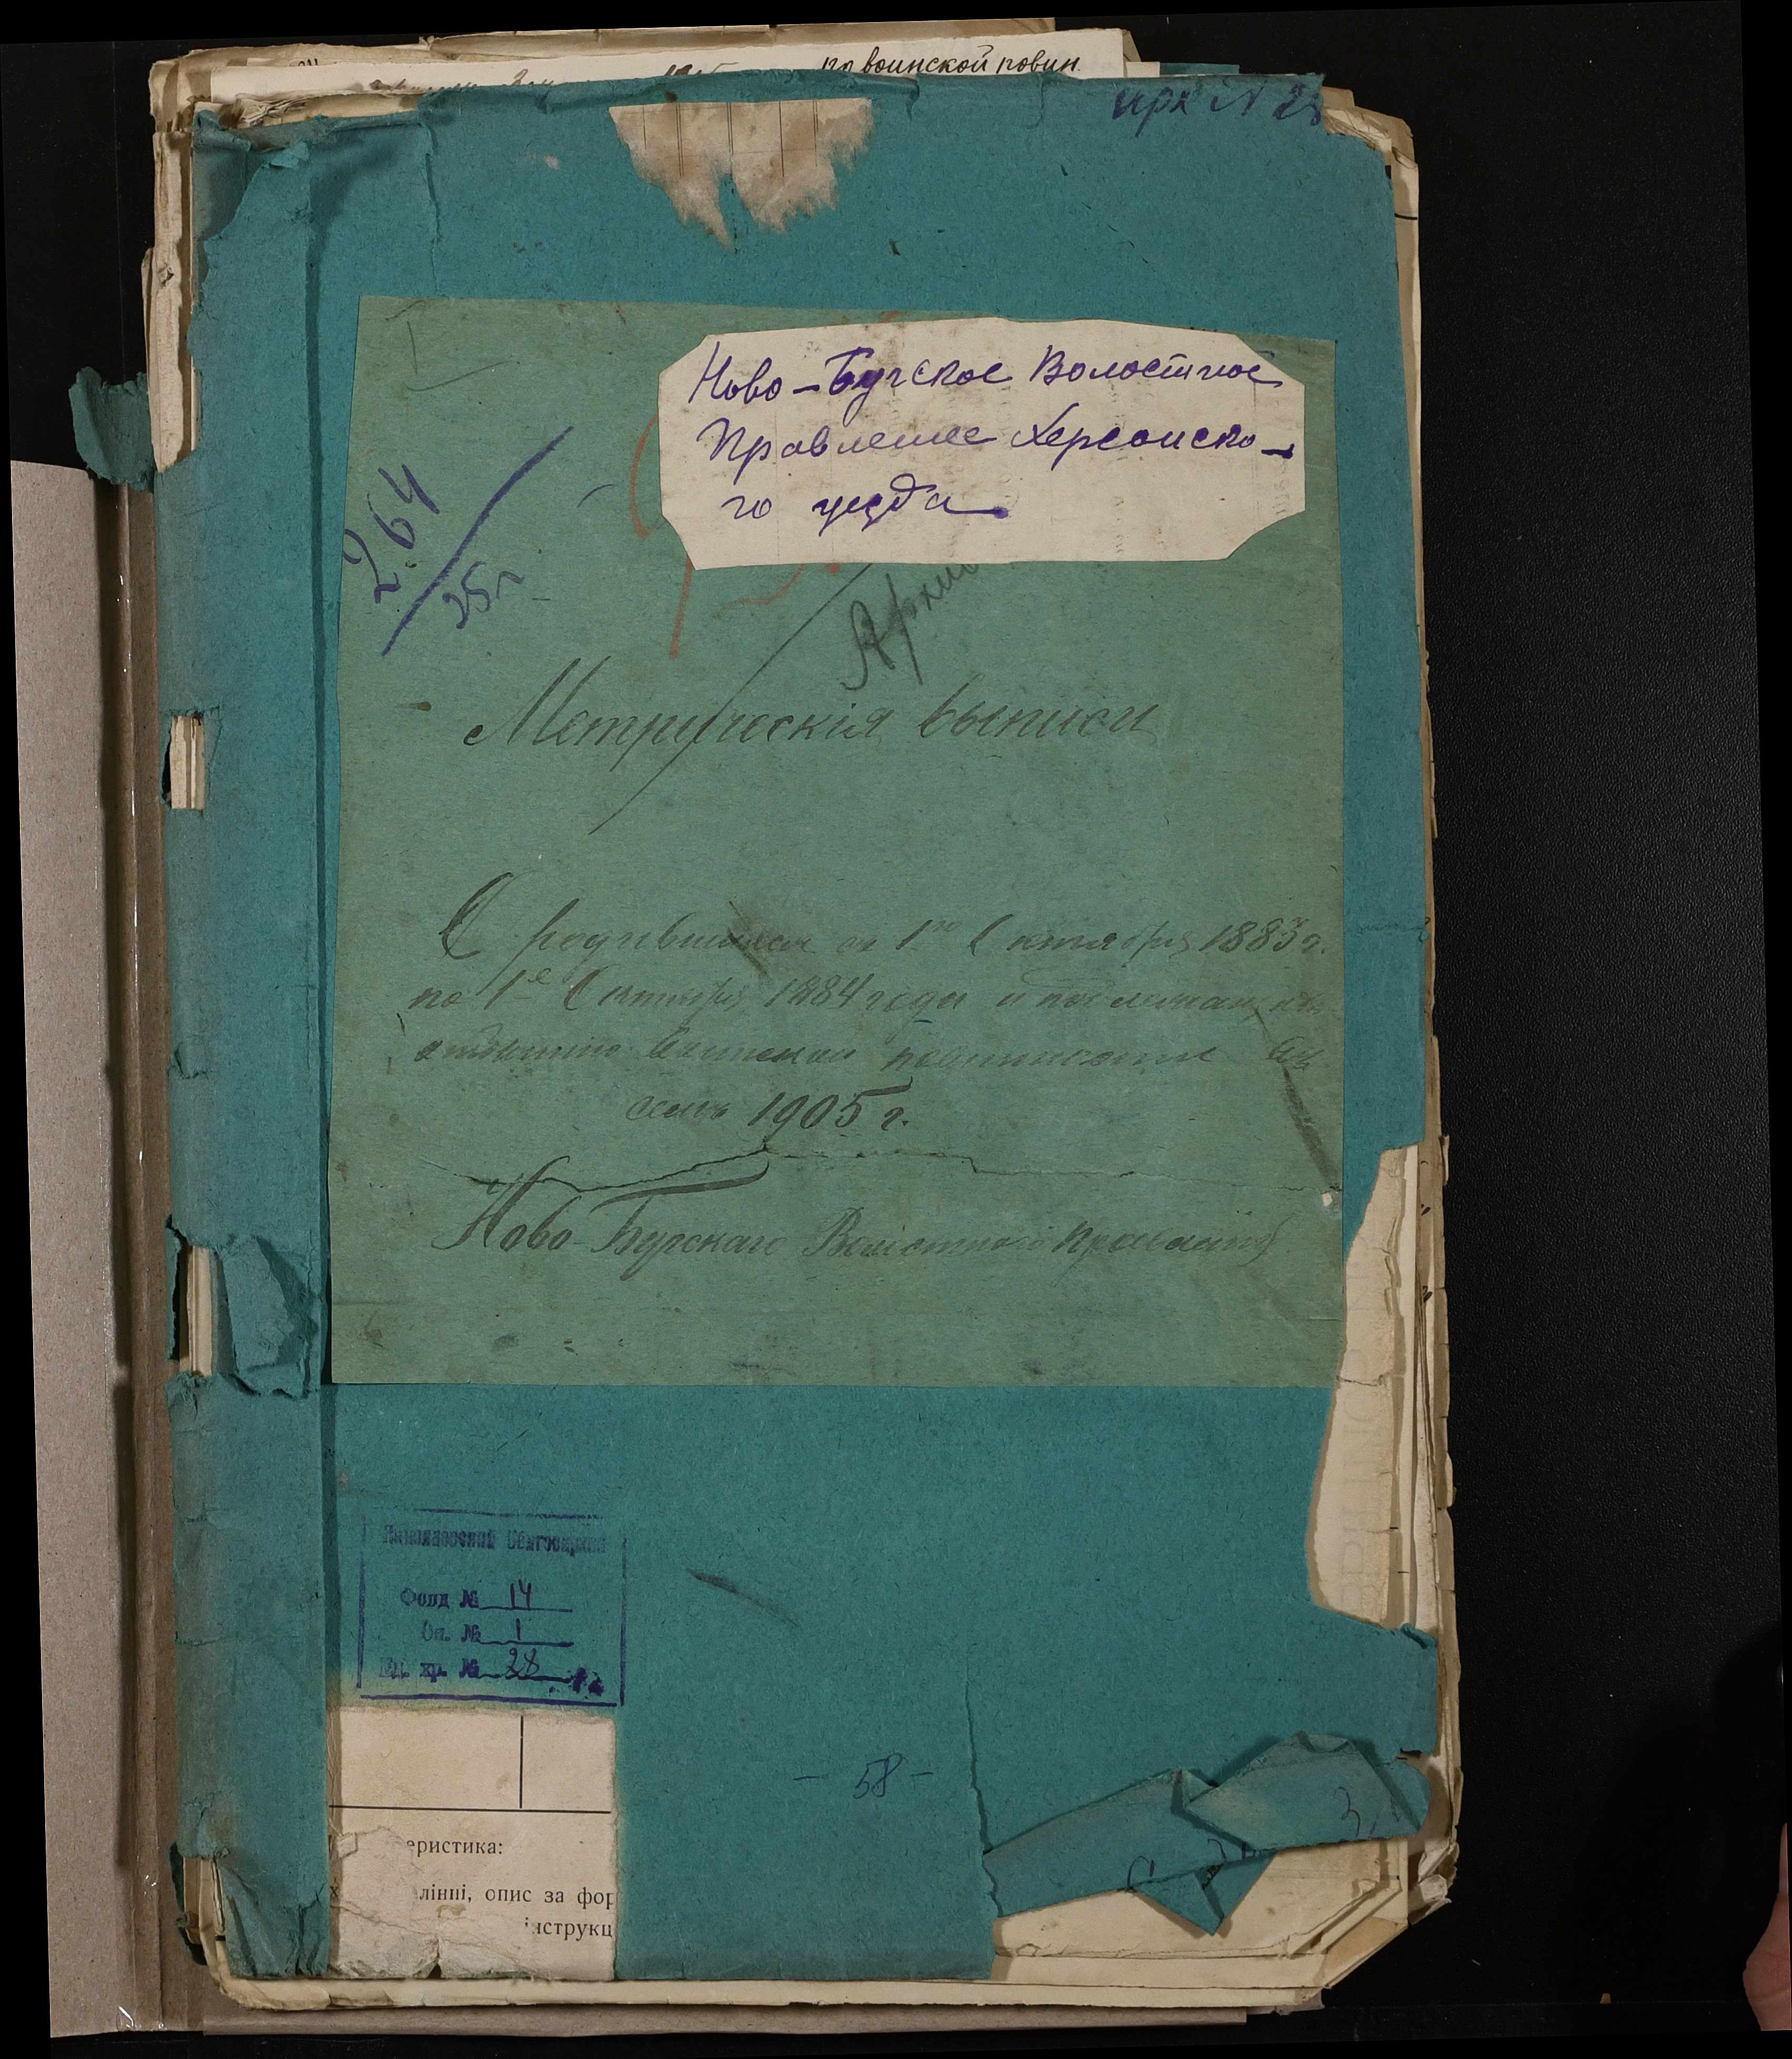 по воинской повин.
арх N 28
Ново-Бугское Волостное
Правление Херсонско-
го уезда
264
25 г
Архив
Метрическія выписи
О родившихся съ 1го Октября 1883 г.
по 1е Октября 1884 года и подлежащихъ
отбытію воинской повинности въ
семъ 1905 г.
Ново-Бугскаго Волостного Правленія
Фонд № 14
Оп. № 1
Ед. хр. № 28
- 58 -
еристика:
лінні, опис за фор
інструкц